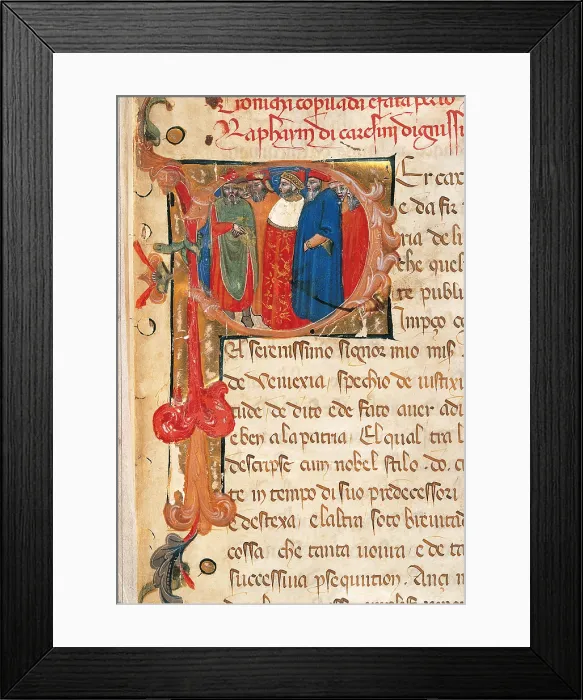 Cronichi copiladi e fata per lo
Rapharin di caresini dignissi
Er car
e da fir
ria de li
che quel
te publi
Impço co
A serenissimo signor mio mis
de Veniexia, spechio de iustixi
tude, de dito e de fato aver adi
e ben a la patria, El qual tra l
descripse cum nobel stilo, do, cu
te in tempo di suo predecessori
e destexa, e laltra soto brevitad
cossa che tanta novita, e de ta
successiva psequution. Anci n